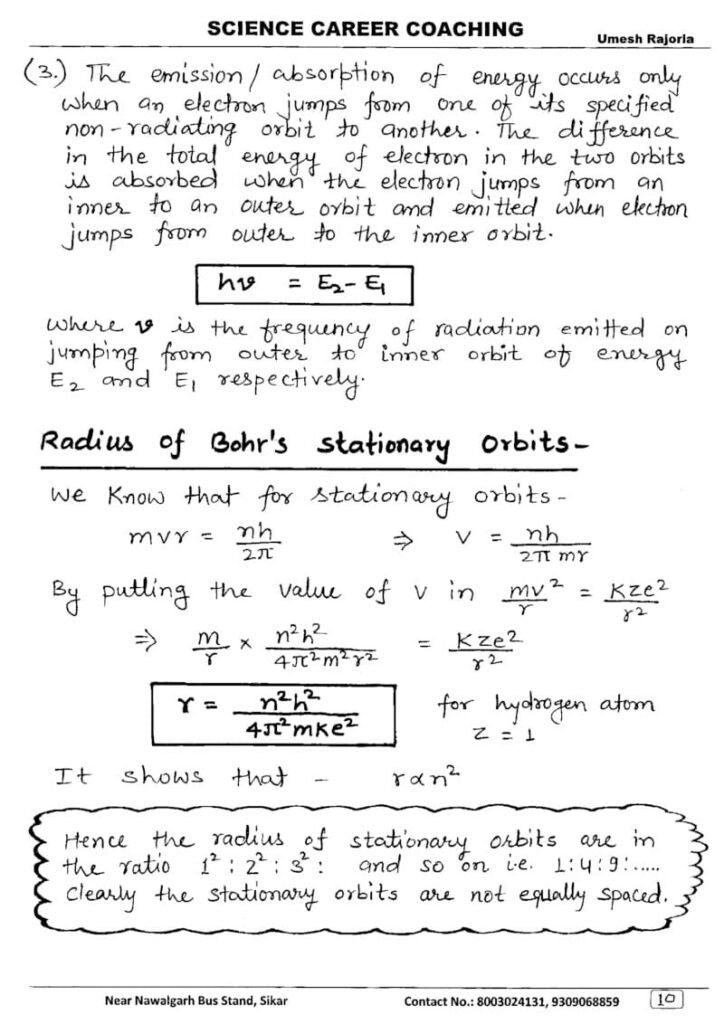 SCIENCE CAREER COACHING
Umesh Rajoria
(3.) The emission / absorption of energy occurs only
when an electron jumps from one of its specified
non-radiating orbit to another. The difference
in the total energy of electron in the two orbits
is absorbed when the electron jumps from an
inner to an outer orbit and emitted when electron
jumps from outer to the inner orbit.
hν = E₂ - E₁
where ν is the frequency of radiation emitted on
jumping from outer to inner orbit of energy
E₂ and E₁ respectively.
Radius of Bohr's stationary orbits-
We Know that for stationary orbits-
mvr = nh/2π ⇒ v = nh/2π mr
By putting the value of v in mv²/r = Kze²/r²
⇒ m/r × n²h²/4π²m²r² = Kze²/r²
r = n²h²/4π²mke² for hydrogen atom
Z = 1
It shows that - r ∝ n²
Hence the radius of stationary orbits are in
the ratio 1² : 2² : 3² : and so on i.e. 1:4:9:.....
Clearly the stationary orbits are not equally spaced.
Near Nawalgarh Bus Stand, Sikar Contact No.: 8003024131, 9309068859 10